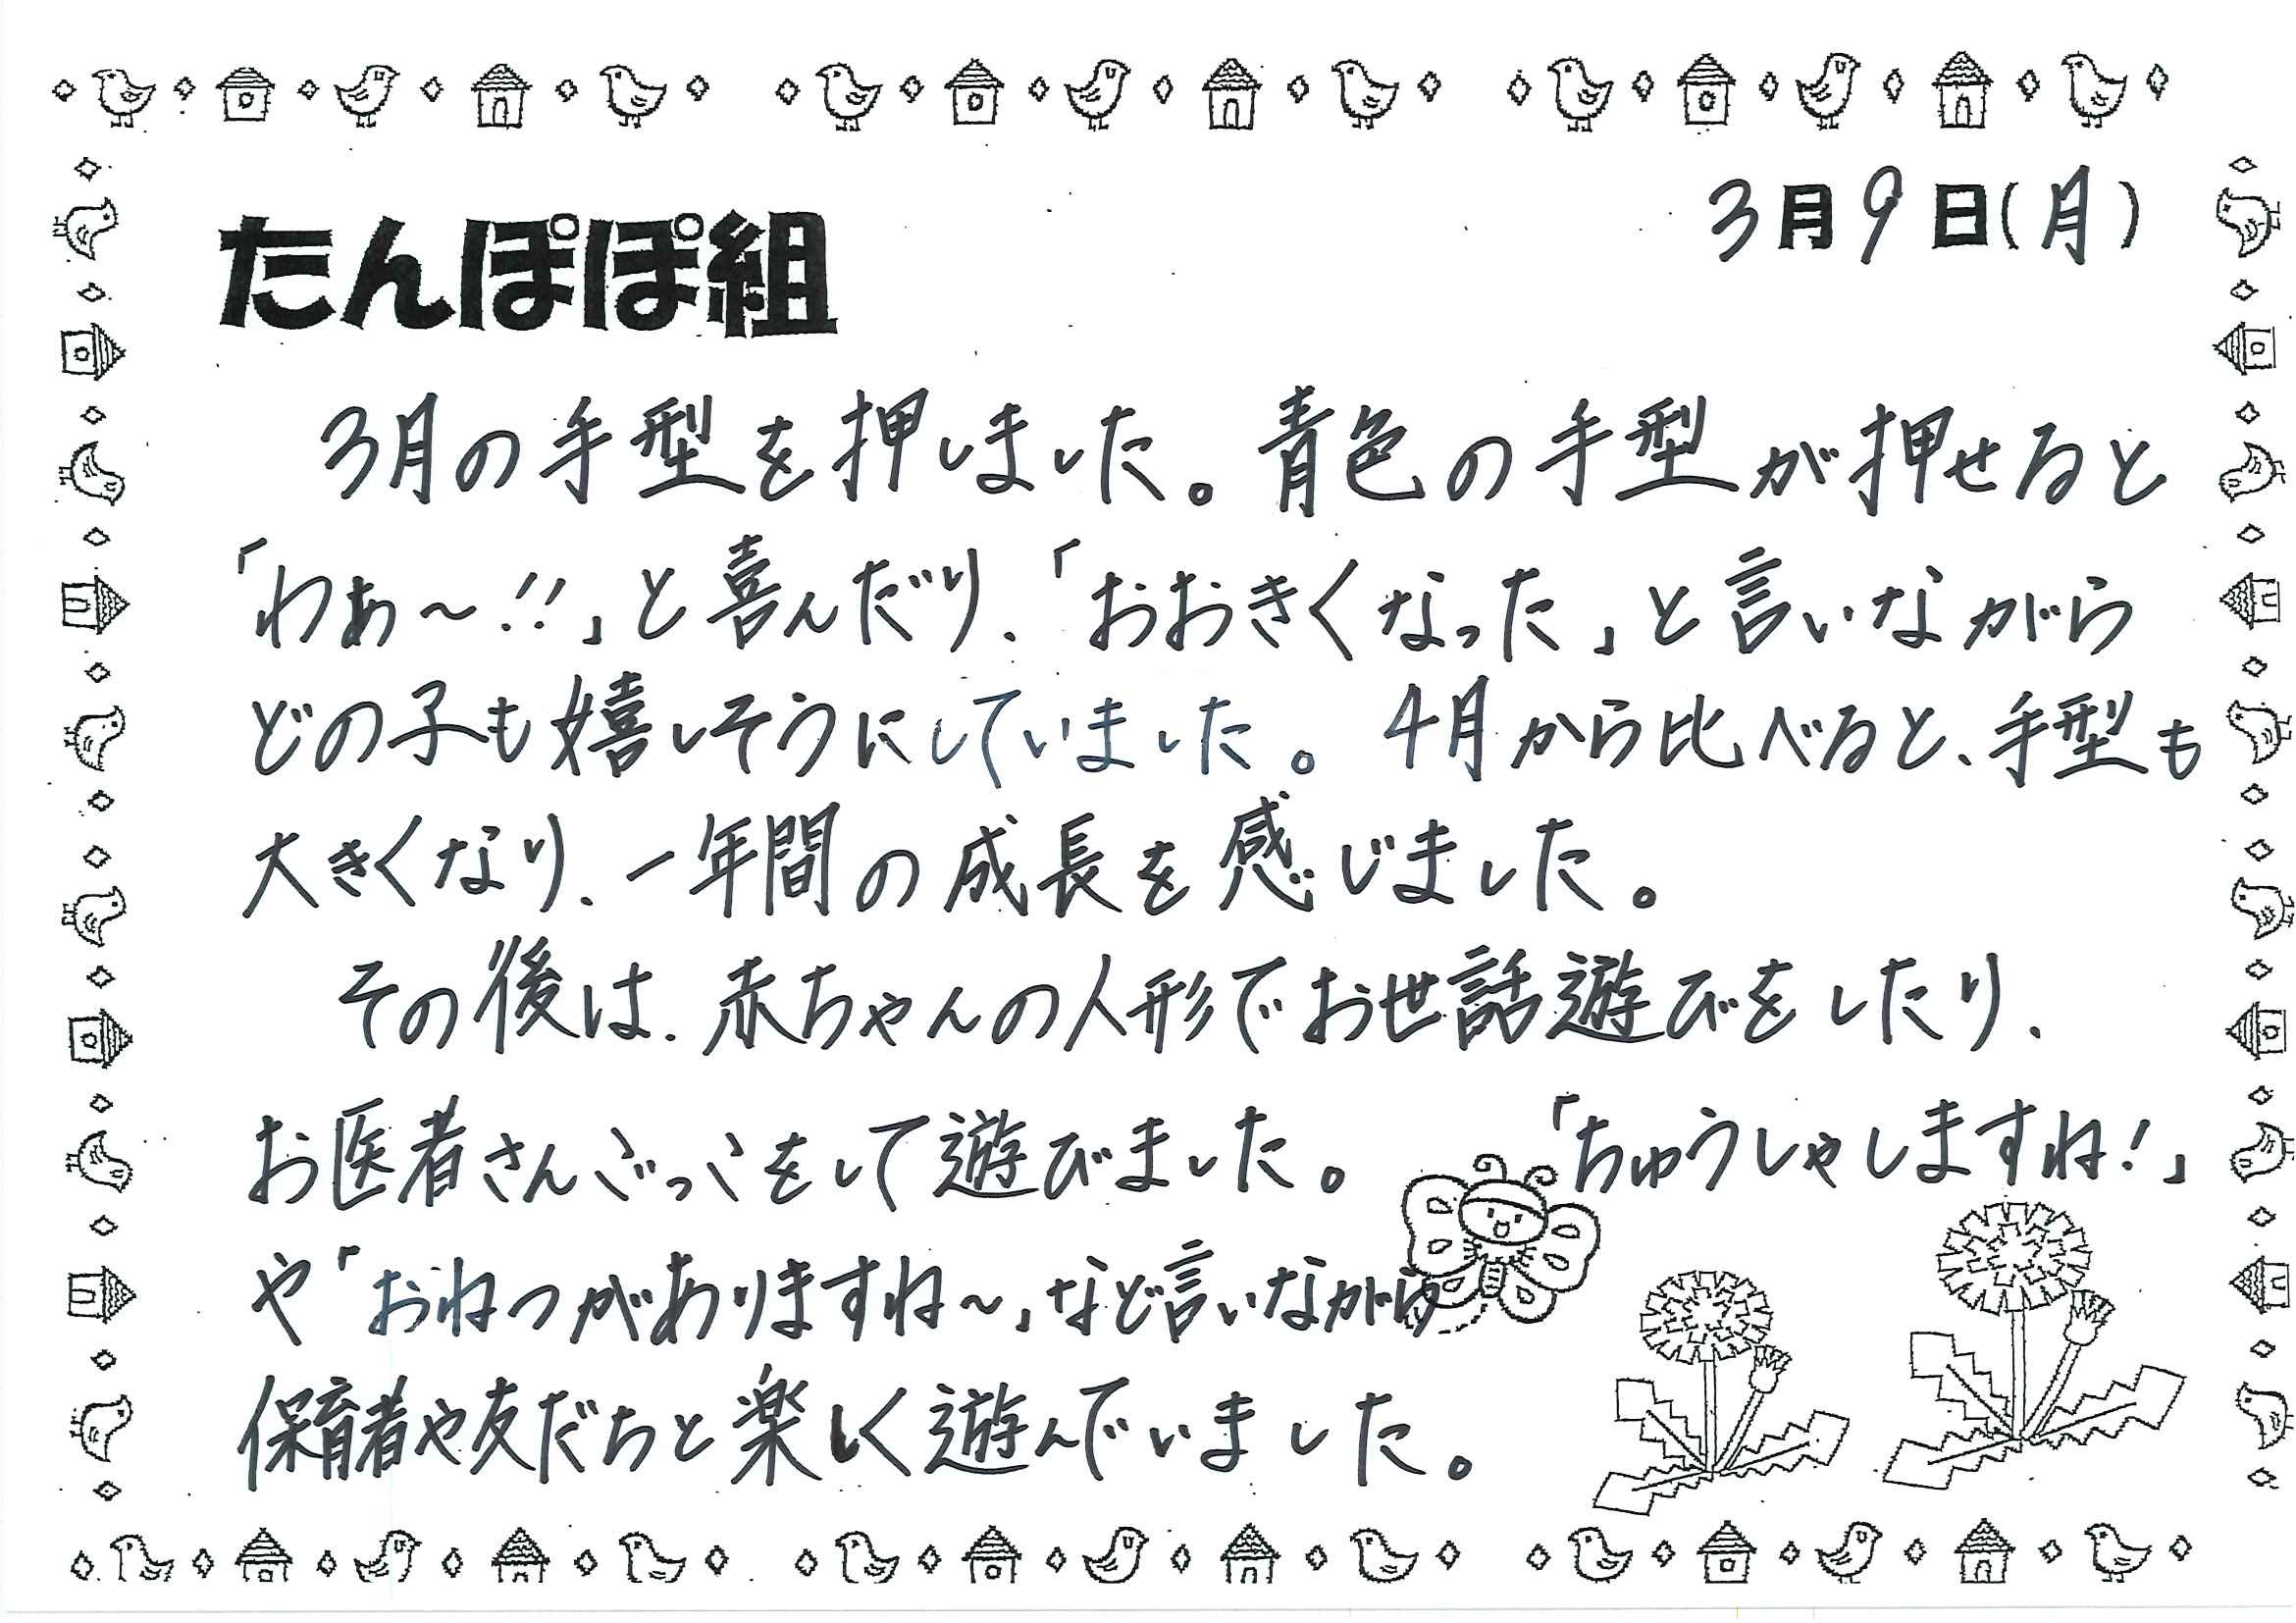 3月9日(月)
たんぽぽ組
3月の手型を押しました。青色の手型が押せると
「わぁ～!!」と喜んだり、「おおきくなった」と言いながら
どの子も嬉しそうにしていました。4月から比べると、手型も
大きくなり、一年間の成長を感じました。
その後は、赤ちゃんの人形でお世話遊びをしたり、
お医者さんごっこをして遊びました。「ちゅうしゃしますね!」
や「おねつがありますね～」など言いながら
保育者や友だちと楽しく遊んでいました。